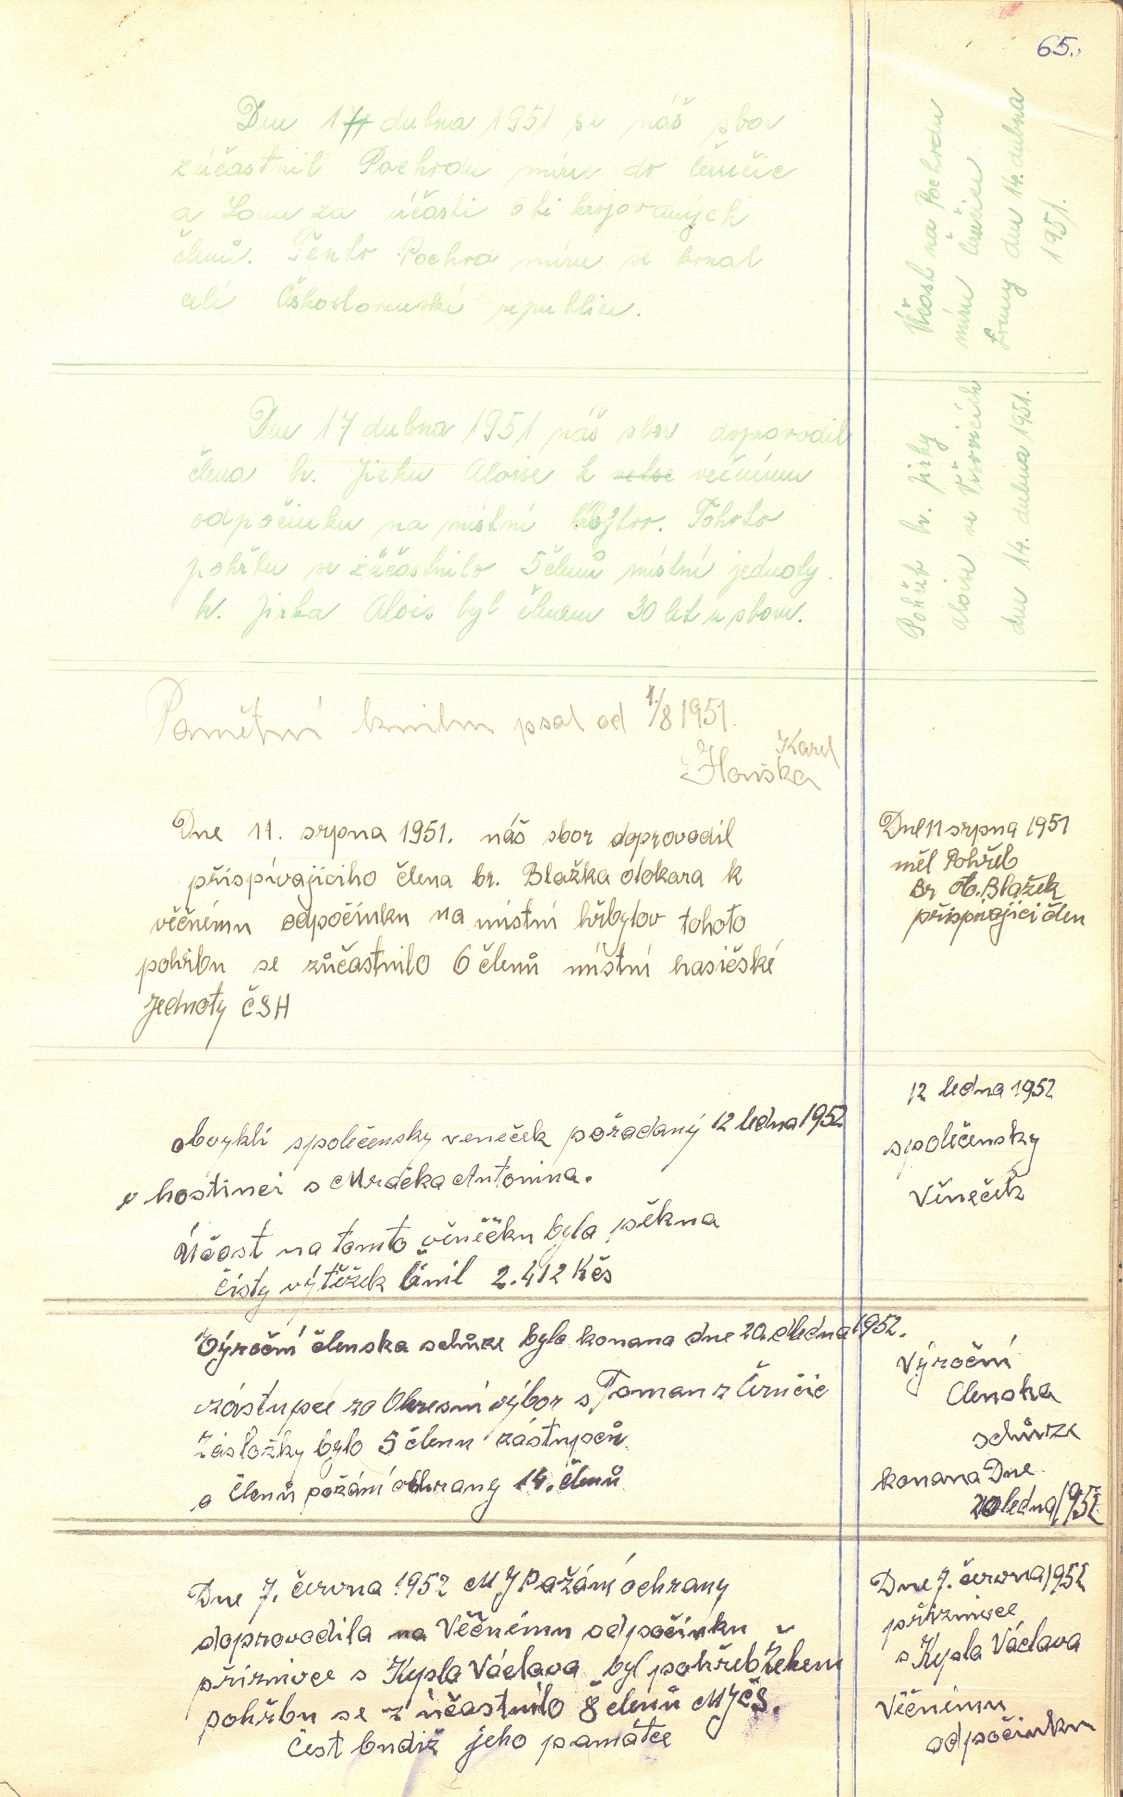 65.
Dne 14 dubna 1951 se náš sbor
zúčastnil Pochodu míru do Černčic
a Loun za účasti 6ti krojovaných
členů. Tento Pochod míru se konal
celé Československé republice.
Účast na Pochodu
míru Černčice
Louny dne 14. dubna
1951.
Dne 17 dubna 1951 náš sbor doprovodil
člena br. Jirku Aloise k večnému
odpočinku na místní hřbytov. Tohoto
pohřbu se zůčastnilo 5 členů místní jednoty.
br. Jirka Alois byl členem 30 let u sboru.
Pohřeb br. Jirky
Aloise ve Vršovicích
dne 14. dubna 1951.
Pamětní knihu psal od 1/8 1951.
Karel
Houska
Dne 11. srpna 1951. náš sbor doprovodil
přispívajícího člena br. Blažka otokara k
věčnému odpočinku na místní hřbytov tohoto
pohřbu se zůčastnilo 6 členů místní hasičské
jednoty ČSH
Dne 11 srpna 1951
měl Pohřeb
Br Ot. Blažek
přispívající člen
obvyklí společensky veneček pořadaný 12 ledna 1952
v hostinci s Mračka Antonina.
Účast na tomto věnečku byla pěkna
čisty výtěžek činil 2.412 Kčs
12 ledna 1952
společensky
Věneček
Výroční členska schůze byla konana dne 20. ledna 1952.
zástupce za Okresní výbor s Toman z Černčic
Zásložky bylo 5 členu zástupců
a členů požární ochrany 14. členů
Výroční
Členska
schůze
konana Dne
20 ledna 1952
Dne 7. června 1952 MJ Požární ochrany
doprovodila na Věčnému odpočinku
příznivce s Kypla Václava byl pohřeb žehem
pohřbu se zúčastnilo 8 členů MJČS.
Čest budiž jeho památce
Dne 7. června 1952
příznivce
s Kypla Václava
Věčnému
odpočinku